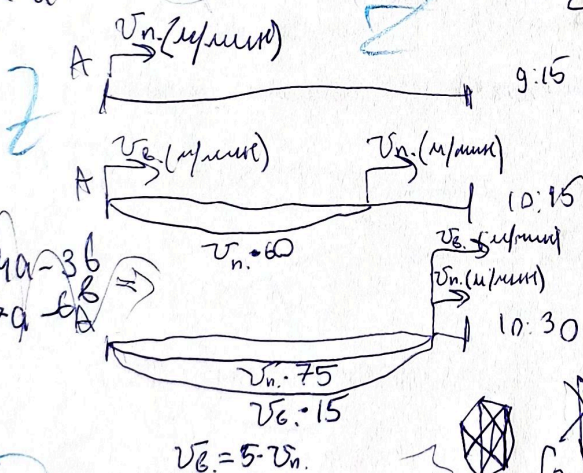 Vп. (м/мин)
A
9:15
Vв. (м/мин) Vп. (м/мин)
A
10:15
Vп. • 60
Vв. (м/мин)
Vп. (м/мин)
10:30
Vп. • 75
Vв. • 15
Vв. = 5 · Vп.